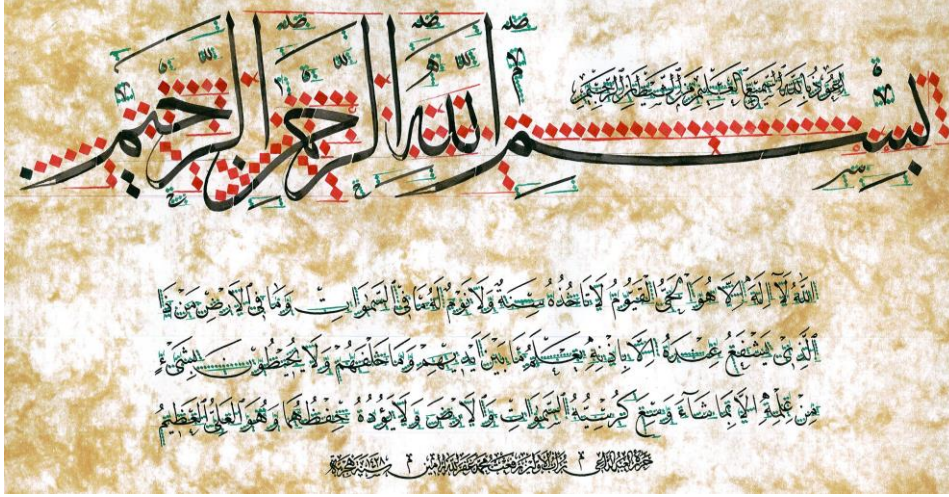 اعوذ بالله السميع العليم من الشيطان الرجيم
بسم الله الرحمن الرحيم
الله لا اله الا هو الحي القيوم لا تاخذه سنة ولا نوم له ما في السموات وما في الارض من ذا
الذي يشفع عنده الا باذنه يعلم ما بين ايديهم وما خلفهم ولا يحيطون بشيء
من علمه الا بما شاء وسع كرسيه السموات والارض ولا يؤده حفظهما وهو العلي العظيم